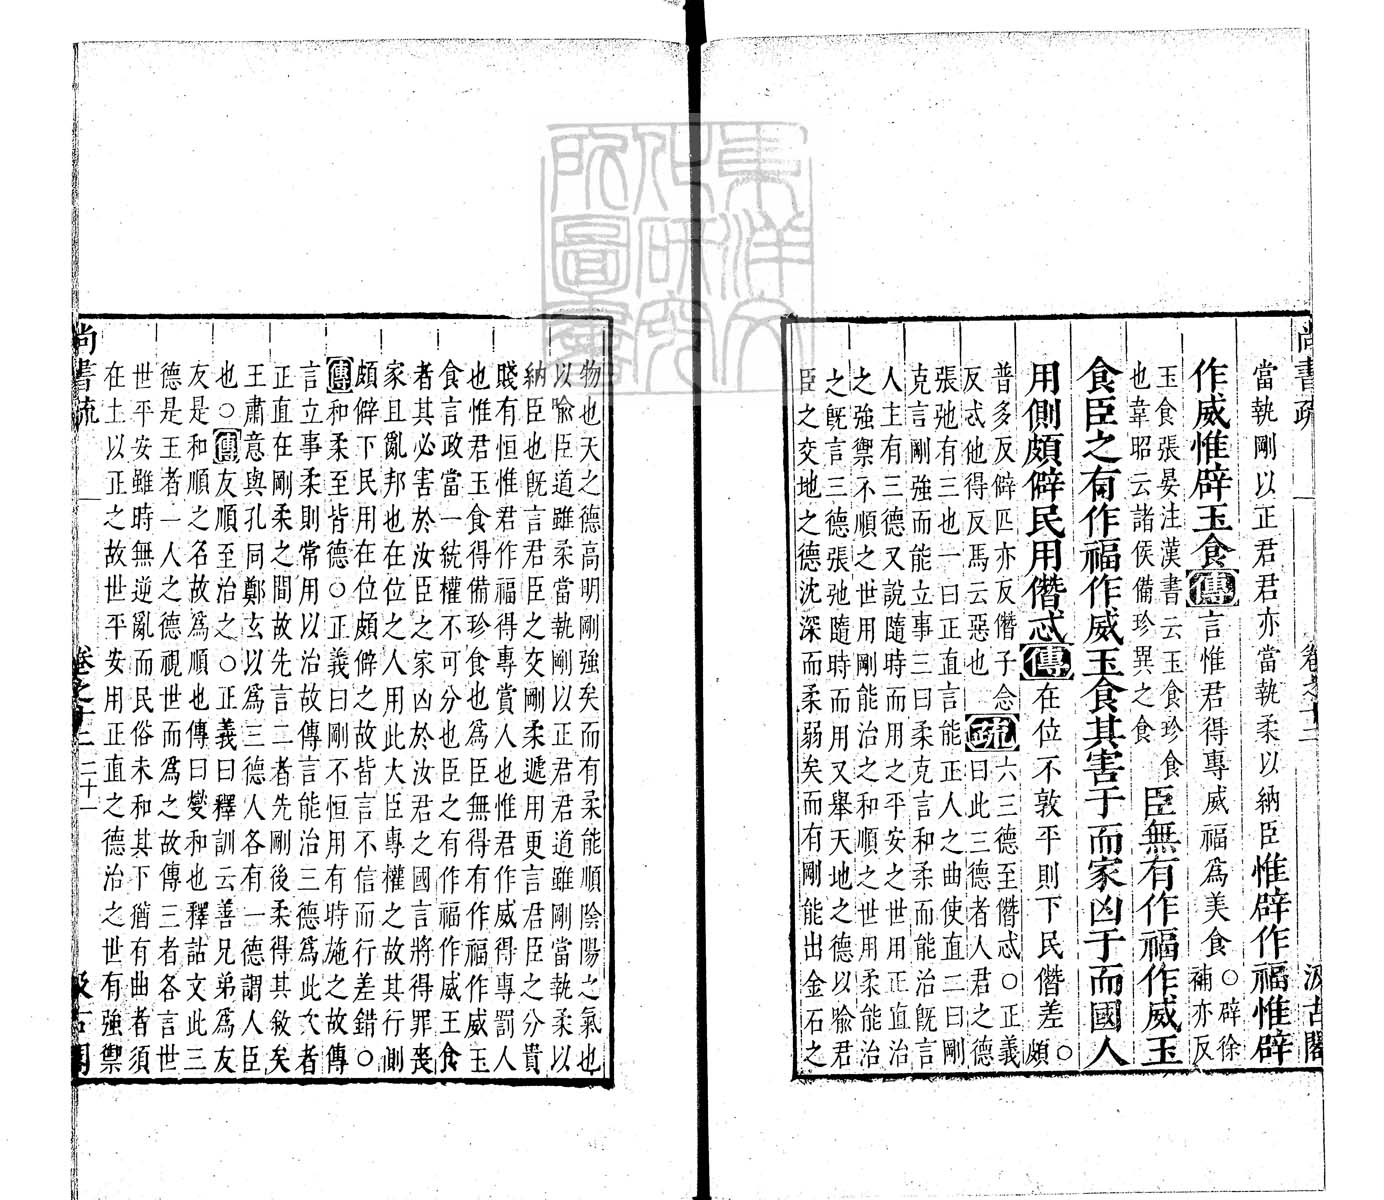 尚書疏 卷之十二 汲古閣
當執剛以正君君亦當執柔以納臣惟辟作福惟辟
作威惟辟玉食傳言惟君得專威福爲美食○辟徐補亦反
玉食張晏注漢書云玉食珍食
也韋昭云諸侯備珍異之食
臣無有作福作威玉
食臣之有作福作威玉食其害于而家凶于而國人
用側頗僻民用僭忒傳在位不敦平則下民僭差○頗
普多反僻匹亦反僭子念
反忒他得反馬云惡也
疏六三德至僭忒○正義
曰此三德者人君之德
張弛有三也一曰正直言能正人之曲使直二曰剛
克言剛強而能立事三曰柔克言和柔而能治既言
人主有三德又說隨時而用之平安之世用正直治
之強禦不順之世用剛能治之和順之世用柔能治
之既言三德張弛隨時而用又舉天地之德以喻君
臣之交地之德沈深而柔弱矣而有剛能出金石之
物也天之德高明剛強矣而有柔能順陰陽之氣也
以喻臣道雖柔當執剛以正君君道雖剛當執柔以
納臣也既言君臣之交剛柔遞用更言君臣之分貴
賤有恒惟君作福得專賞人也惟君作威得專罰人
也惟君玉食得備珍食也爲臣無得有作福作威玉
食言政當一統權不可分也臣之有作福作威王食
者其必害於汝臣之家凶於汝君之國言將得罪喪
家且亂邦也在位之人用此大臣專權之故其行側
頗僻下民用在位頗僻之故皆言不信而行差錯○
傳和柔至皆德○正義曰剛不恒用有時施之故傳
言立事柔則常用以治故傳言能治三德爲此次者
正直在剛柔之間故先言二者先剛後柔得其敘矣
王肅意與孔同鄭玄以爲三德人各有一德謂人臣
也○傳友順至治之○正義曰釋訓云善兄弟爲友
友是和順之名故爲順也傳曰燮和也釋詁文此三
德是王者一人之德視世而爲之故傳三者各言世
世平安雖時無逆亂而民俗未和其下猶有曲者須
在土以正之故世平安用正直之德治之世有強禦
尚書疏 卷之十二 二十一 汲古閣
東洋文化研究所圖書